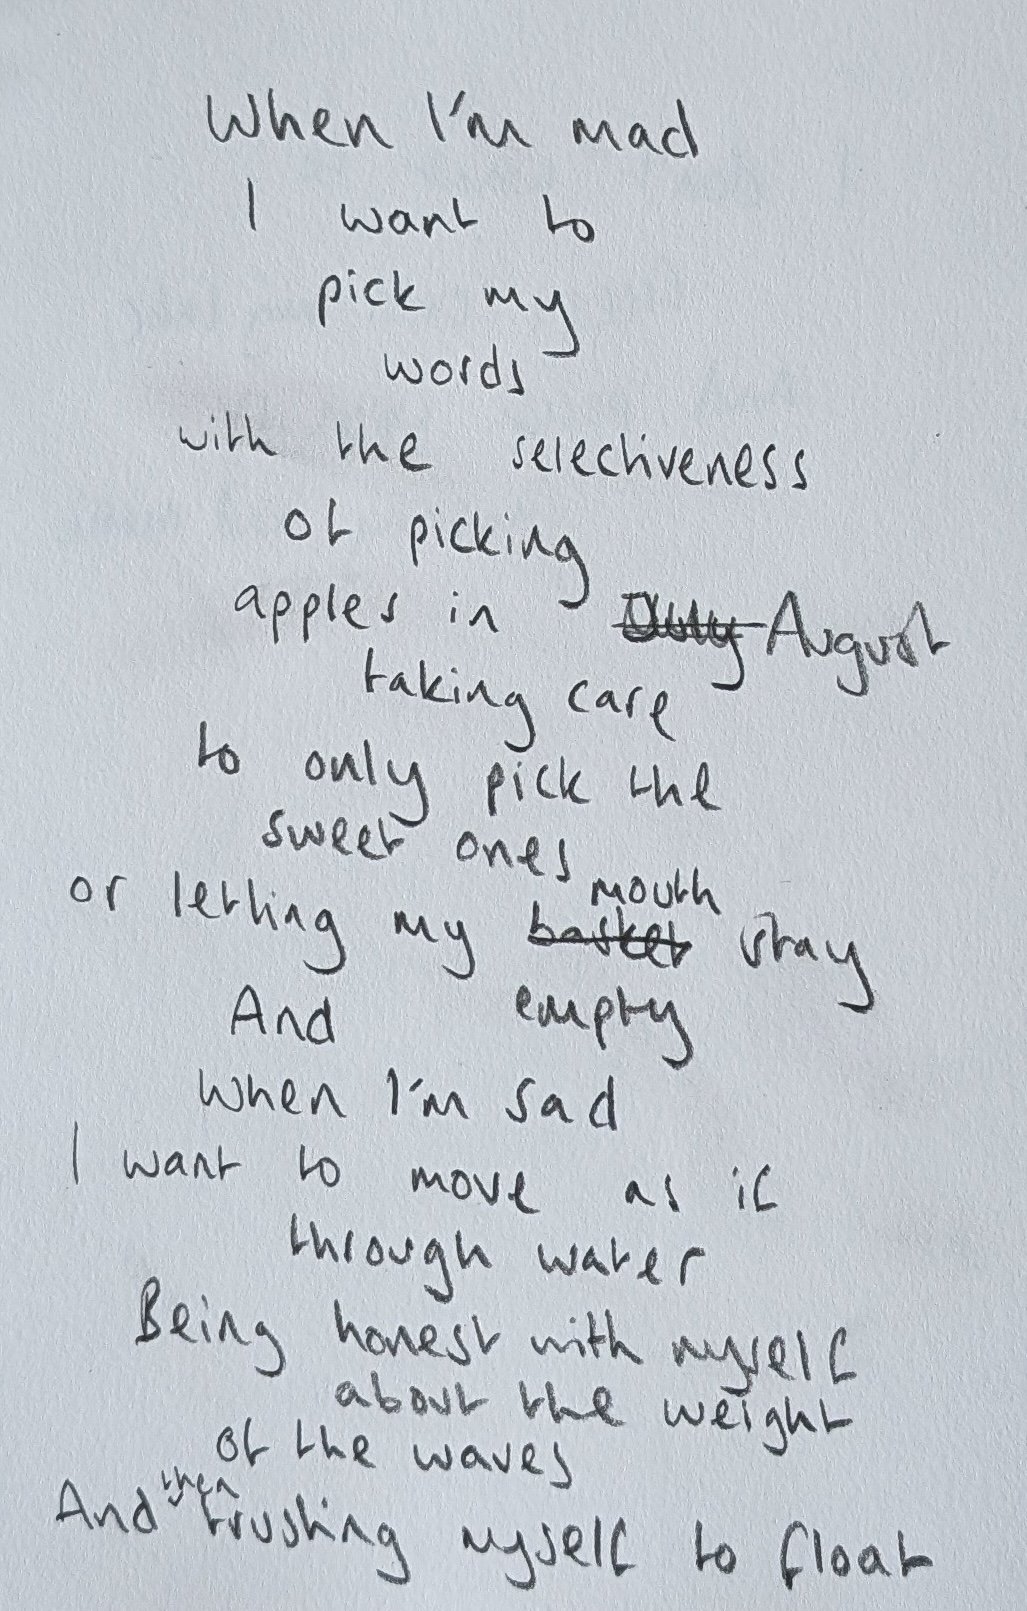 When I'm mad
I want to
pick my
words
with the selectiveness
of picking
apples in July August
taking care
to only pick the
sweet ones
or letting my basket mouth stay
And empty
when I'm sad
I want to move as if
through water
Being honest with myself
about the weight
of the waves
And then trusting myself to float